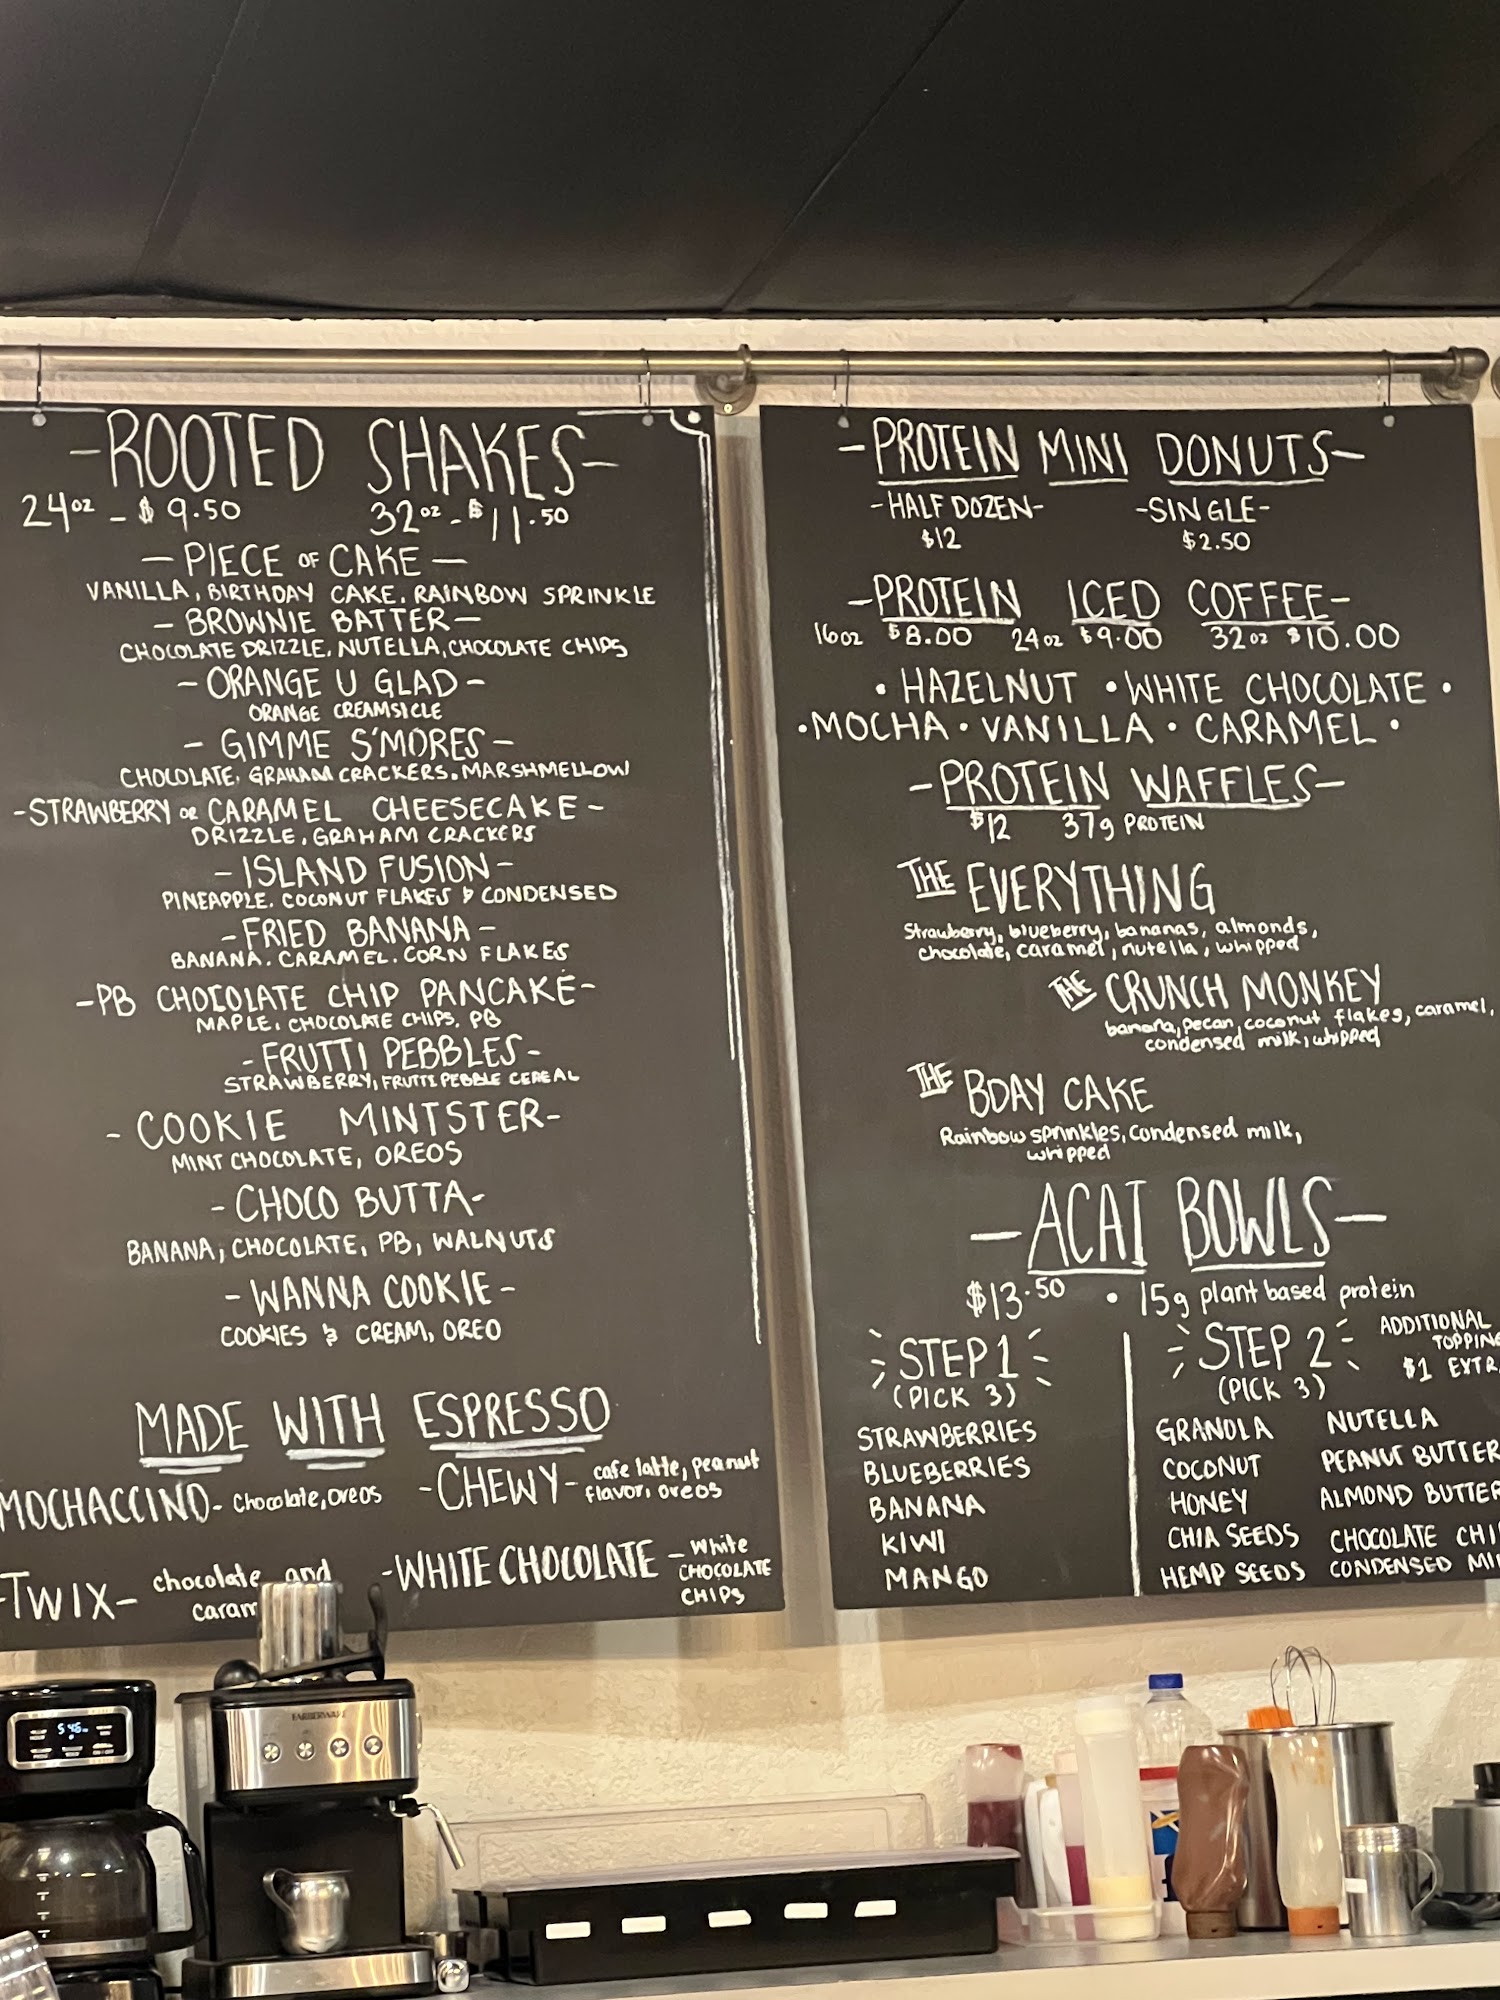 -ROOTED SHAKES-
24oz - $9.50 32oz - $11.50
- PIECE OF CAKE -
VANILLA, BIRTHDAY CAKE, RAINBOW SPRINKLE
- BROWNIE BATTER -
CHOCOLATE DRIZZLE, NUTELLA, CHOCOLATE CHIPS
- ORANGE U GLAD -
ORANGE CREAMSICLE
- GIMME S'MORES -
CHOCOLATE, GRAHAM CRACKERS, MARSHMELLOW
-STRAWBERRY OR CARAMEL CHEESECAKE-
DRIZZLE, GRAHAM CRACKERS
- ISLAND FUSION -
PINEAPPLE, COCONUT FLAKES & CONDENSED
- FRIED BANANA -
BANANA, CARAMEL, CORN FLAKES
-PB CHOCOLATE CHIP PANCAKE-
MAPLE, CHOCOLATE CHIPS, PB
- FRUTTI PEBBLES -
STRAWBERRY, FRUTTI PEBBLE CEREAL
- COOKIE MINTSTER-
MINT CHOCOLATE, OREOS
- CHOCO BUTTA-
BANANA, CHOCOLATE, PB, WALNUTS
- WANNA COOKIE -
COOKIES & CREAM, OREO
MADE WITH ESPRESSO
MOCHACCINO- Chocolate, oreos
-CHEWY- cafe latte, peanut
flavor, oreos
-TWIX- chocolate and
caram
-WHITE CHOCOLATE - White
CHOCOLATE
CHIPS
-PROTEIN MINI DONUTS-
-HALF DOZEN- -SINGLE-
$12 $2.50
-PROTEIN ICED COFFEE-
16oz $8.00 24oz $9.00 32oz $10.00
• HAZELNUT • WHITE CHOCOLATE •
• MOCHA • VANILLA • CARAMEL •
-PROTEIN WAFFLES-
$12 37g PROTEIN
THE EVERYTHING
Strawberry, blueberry, bananas, almonds,
chocolate, caramel, nutella, whipped
THE CRUNCH MONKEY
banana, pecan, coconut flakes, caramel,
condensed milk, whipped
THE BDAY CAKE
Rainbow sprinkles, condensed milk,
whipped
- ACAI BOWLS-
$13.50 • 15g plant based protein
STEP 1
(PICK 3)
STRAWBERRIES
BLUEBERRIES
BANANA
KIWI
MANGO
STEP 2
(PICK 3)
ADDITIONAL
TOPPING
$1 EXTR
GRANOLA NUTELLA
COCONUT PEANUT BUTTER
HONEY ALMOND BUTTER
CHIA SEEDS CHOCOLATE CHI
HEMP SEEDS CONDENSED MI
FARBERWARE
5:46